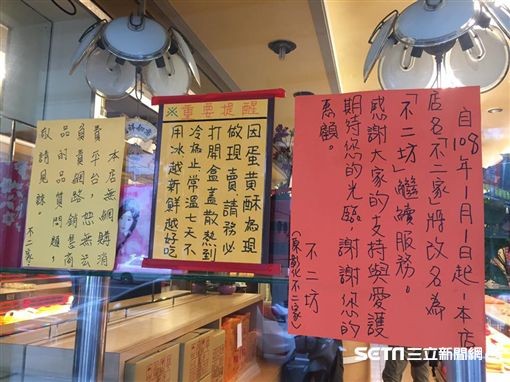 自108年1月1日起，本店
店名「不二家」將改名為
「不二坊」繼續服務。
感謝大家的支持與愛護
期待您的光臨，謝謝您的
惠顧。
不二坊
(原彰化不二家)
※重要提醒
因蛋黃酥為現
做現賣請務必
打開盒蓋散熱到
冷為止常溫七天不
用冰越新鮮越好吃
本店無網購消
費平台，恕無法
負責網路銷售商
品的品質問題，
敬請見諒。
不二家
SETN三立新聞網